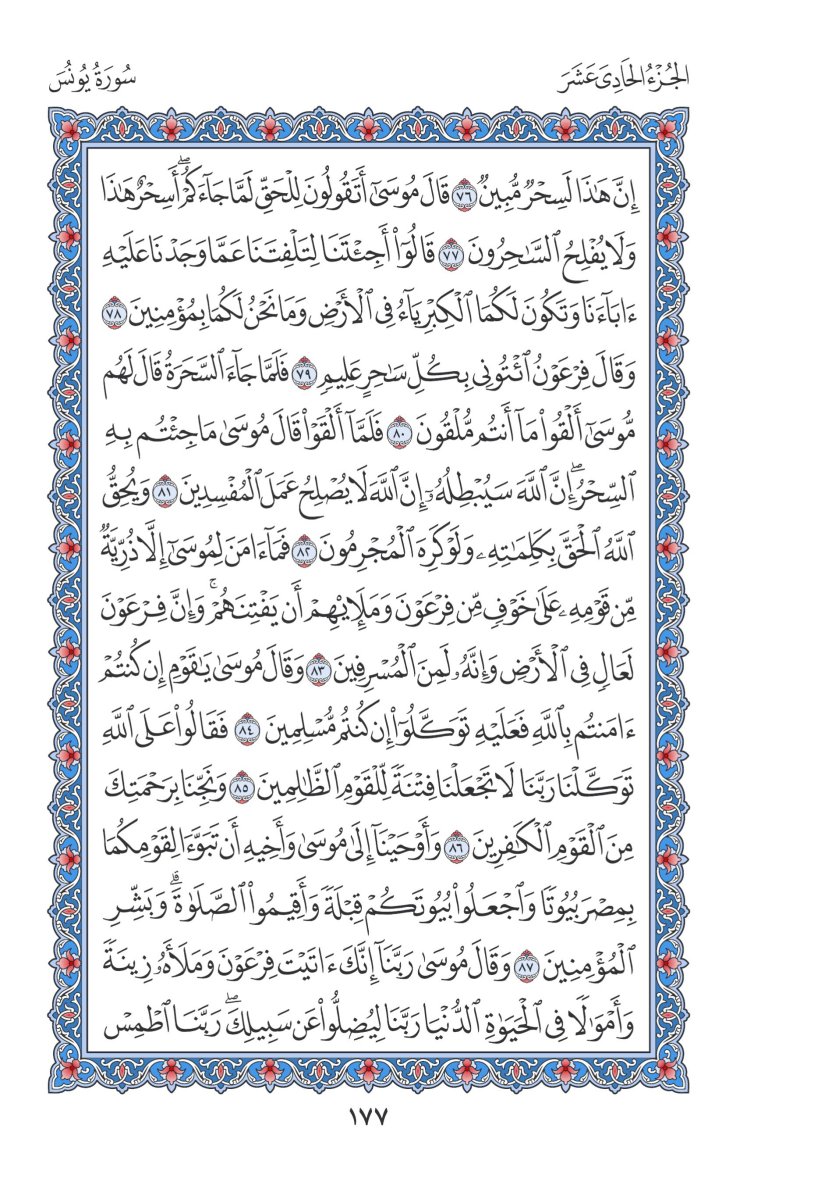 الجُزْءُ الحَادِىَ عَشَرَ
سُورَةُ يُونُسَ
إِنَّ هَٰذَا لَسِحْرٌ مُّبِينٌ ٧٦ قَالَ مُوسَىٰٓ أَتَقُولُونَ لِلْحَقِّ لَمَّا جَآءَكُمْۖ أَسِحْرٌ هَٰذَا
وَلَا يُفْلِحُ ٱلسَّٰحِرُونَ ٧٧ قَالُوٓا۟ أَجِئْتَنَا لِتَلْفِتَنَا عَمَّا وَجَدْنَا عَلَيْهِ
ءَابَآءَنَا وَتَكُونَ لَكُمَا ٱلْكِبْرِيَآءُ فِى ٱلْأَرْضِ وَمَا نَحْنُ لَكُمَا بِمُؤْمِنِينَ ٧٨
وَقَالَ فِرْعَوْنُ ٱئْتُونِى بِكُلِّ سَٰحِرٍ عَلِيمٍ ٧٩ فَلَمَّا جَآءَ ٱلسَّحَرَةُ قَالَ لَهُم
مُّوسَىٰٓ أَلْقُوا۟ مَآ أَنتُم مُّلْقُونَ ٨٠ فَلَمَّآ أَلْقَوْا۟ قَالَ مُوسَىٰ مَا جِئْتُم بِهِ
ٱلسِّحْرُۖ إِنَّ ٱللَّهَ سَيُبْطِلُهُۥٓ إِنَّ ٱللَّهَ لَا يُصْلِحُ عَمَلَ ٱلْمُفْسِدِينَ ٨١ وَيُحِقُّ
ٱللَّهُ ٱلْحَقَّ بِكَلِمَٰتِهِۦ وَلَوْ كَرِهَ ٱلْمُجْرِمُونَ ٨٢ فَمَآ ءَامَنَ لِمُوسَىٰٓ إِلَّا ذُرِّيَّةٌ
مِّن قَوْمِهِۦ عَلَىٰ خَوْفٍ مِّن فِرْعَوْنَ وَمَلَإِي۟هِمْ أَن يَفْتِنَهُمْۚ وَإِنَّ فِرْعَوْنَ
لَعَالٍ فِى ٱلْأَرْضِ وَإِنَّهُۥ لَمِنَ ٱلْمُسْرِفِينَ ٨٣ وَقَالَ مُوسَىٰ يَٰقَوْمِ إِن كُنتُمْ
ءَامَنتُم بِٱللَّهِ فَعَلَيْهِ تَوَكَّلُوٓا۟ إِن كُنتُم مُّسْلِمِينَ ٨٤ فَقَالُوا۟ عَلَى ٱللَّهِ
تَوَكَّلْنَا رَبَّنَا لَا تَجْعَلْنَا فِتْنَةً لِّلْقَوْمِ ٱلظَّٰلِمِينَ ٨٥ وَنَجِّنَا بِرَحْمَتِكَ
مِنَ ٱلْقَوْمِ ٱلْكَٰفِرِينَ ٨٦ وَأَوْحَيْنَآ إِلَىٰ مُوسَىٰ وَأَخِيهِ أَن تَبَوَّءَا لِقَوْمِكُمَا
بِمِصْرَ بُيُوتًا وَٱجْعَلُوا۟ بُيُوتَكُمْ قِبْلَةً وَأَقِيمُوا۟ ٱلصَّلَوٰةَۗ وَبَشِّرِ
ٱلْمُؤْمِنِينَ ٨٧ وَقَالَ مُوسَىٰ رَبَّنَآ إِنَّكَ ءَاتَيْتَ فِرْعَوْنَ وَمَلَأَهُۥ زِينَةً
وَأَمْوَٰلًا فِى ٱلْحَيَوٰةِ ٱلدُّنْيَا رَبَّنَا لِيُضِلُّوا۟ عَن سَبِيلِكَۖ رَبَّنَا ٱطْمِسْ
١٧٧